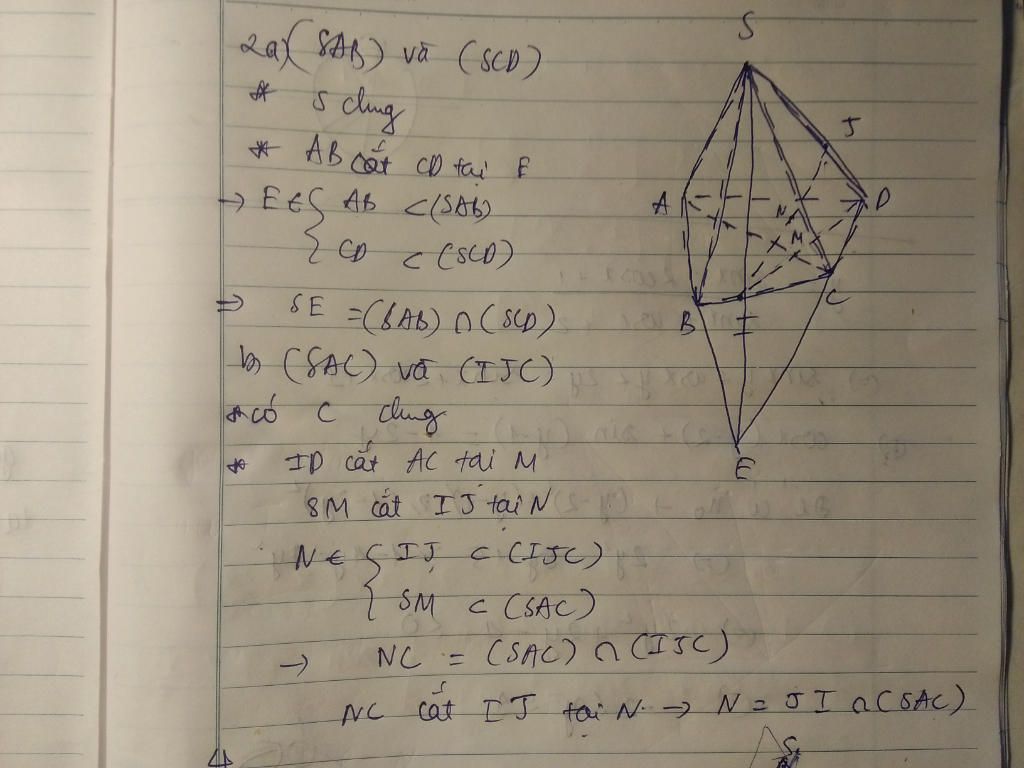 2a) (SAB) và (SCD)
* S chung
* AB cắt CD tại E
→ E ∈ { AB ⊂ (SAB)
CD ⊂ (SCD)
⇒ SE = (SAB) ∩ (SCD)
b) (SAC) và (IJC)
* có C chung
* ID cắt AC tại M
SM cắt IJ tại N
N ∈ { IJ ⊂ (IJC)
SM ⊂ (SAC)
→ NC = (SAC) ∩ (IJC)
NC cắt IJ tại N → N = JI ∩ (SAC)
S
J
A
D
N
M
B
I
C
E
S